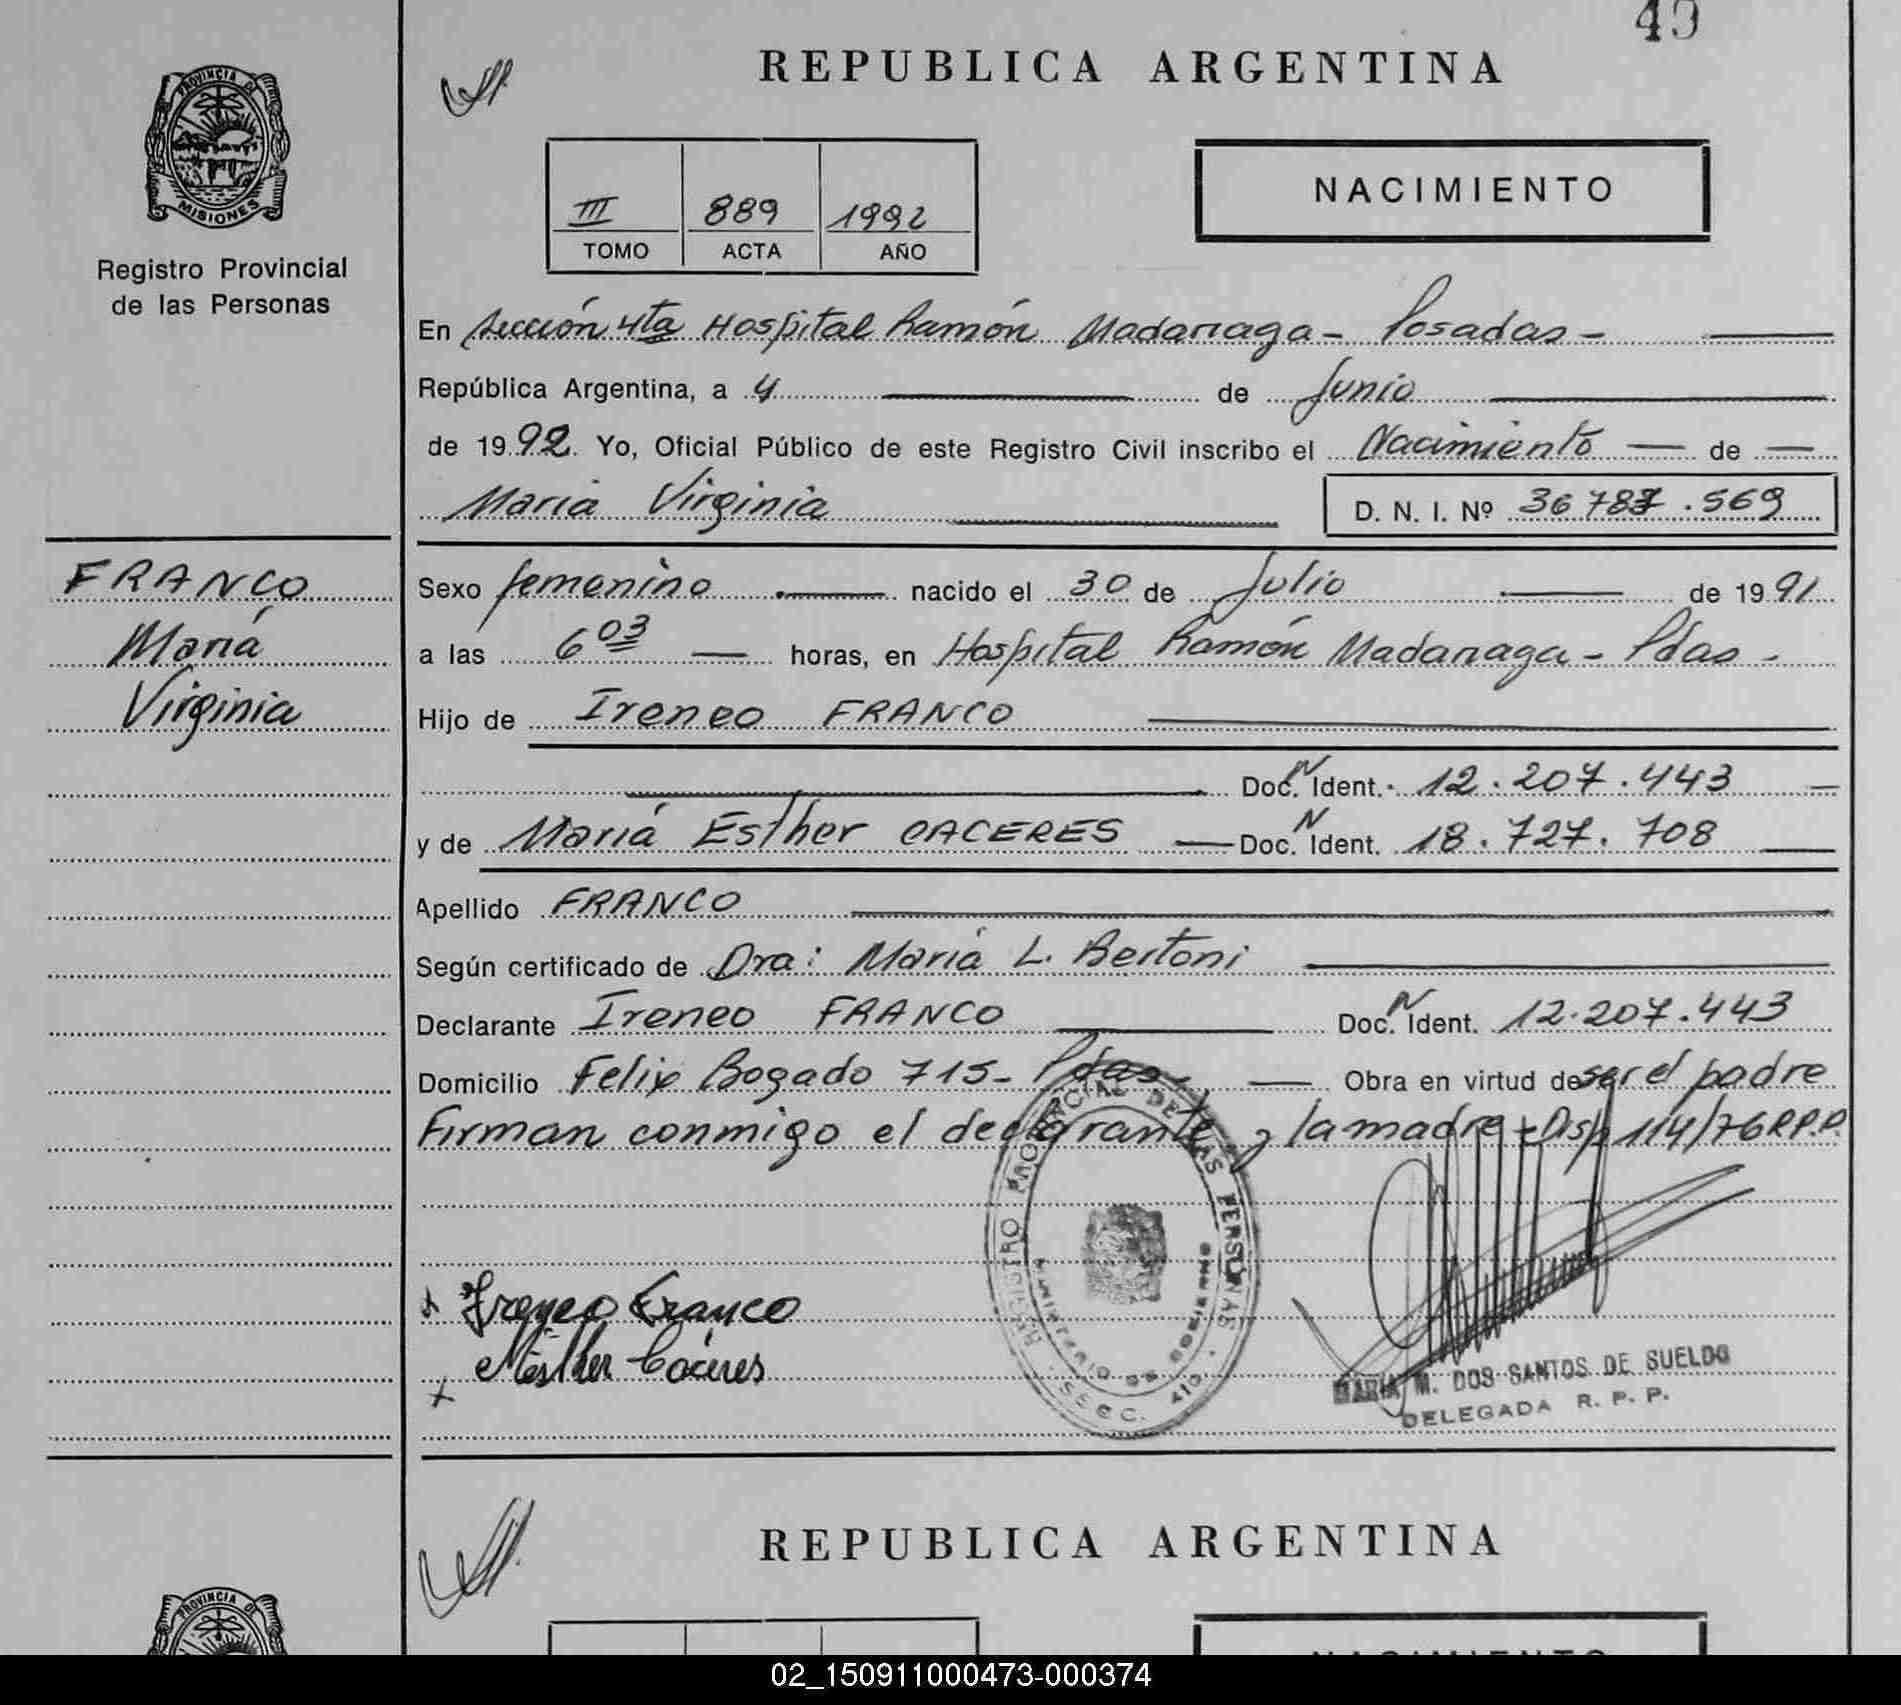 49
REPUBLICA ARGENTINA
PROVINCIA DE
MISIONES
Registro Provincial
de las Personas
III 889 1992
TOMO ACTA AÑO
NACIMIENTO
En Sección 4ta Hospital Ramón Madariaga - Posadas -
República Argentina, a 4 de Junio
de 1992. Yo, Oficial Público de este Registro Civil inscribo el Nacimiento de
María Virginia D. N. I. Nº 36 787.569
FRANCO
María
Virginia
Sexo femenino nacido el 30 de Julio de 1991
a las 6 03 horas, en Hospital Ramón Madariaga - Pdas -
Hijo de Ireneo FRANCO
Doc. N Ident. 12.207.443
y de María Esther CACERES Doc. N Ident. 18.727.708
Apellido FRANCO
Según certificado de Dra: María L. Bertoni
Declarante Ireneo FRANCO Doc. N Ident. 12.207.443
Domicilio Felix Bogado 715 - Pdas - Obra en virtud de ser el padre
Firman conmigo el declarante y la madre - Disp 114/76 R.P.P.
REGISTRO PROVINCIAL DE LAS PERSONAS
MINISTERIO DE GOBIERNO
SECC. 4ta
x Ireneo Franco
x MEsther Cáceres
MARIA M. DOS SANTOS DE SUELDO
DELEGADA R. P. P.
REPUBLICA ARGENTINA
PROVINCIA DE
NACIMIENTO
02_150911000473-000374